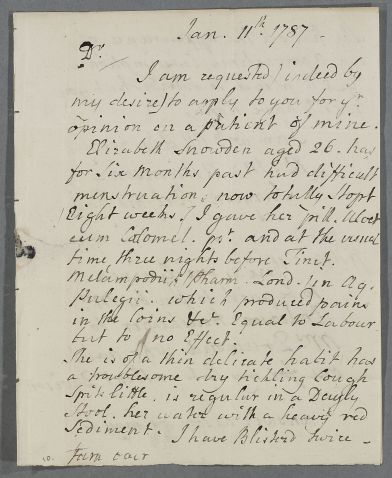 Jan. 11th 1787 -
Dr.
I am requested (indeed by
my desire) to apply to you for yr.
opinion on a patient of mine.
Elizabeth Snowden aged 26. has
for Six Months past had difficult
menstruation; now totally Stopt
Eight weeks. I gave her pill.
cum Calomel. and at the usual
time three nights before Tinct.
Melampodii (Pharm. Lond.) in Aq.
Pulegii. which produced pains
in the Loins &c. Equal to Labour
but to no Effect.
She is of a thin delicate habit has
a troublesome dry tickling Cough
Spits little. is regular in a Dayly
Stool. her water with a heavy red
Sediment. I have Blisterd twice -